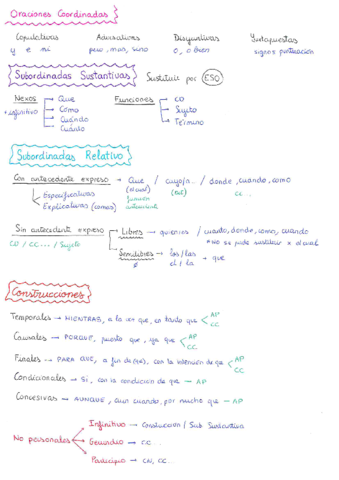 Oraciones Coordinadas
Copulativas Adversativas Disyuntivas Yustapuestas
y e ni pero, mas, sino o, o bien signos puntuación
Subordinadas Sustantivas Sustituir por ESO
Nexos Que Funciones CO
+ infinitivo Cómo Sujeto
Cuándo Término
Cuánto
Subordinadas Relativo
Con antecedente expreso → Que / cuyo/a.. / donde, cuando, como
(el cual) (CN) CC ..
Especificativas función
Explicativas (comas) antecedente
Sin antecedente expreso Libres → quien/es / cuanto, donde, como, cuando
CO / CC ... / Sujeto *No se puede sustituir x el cual
Semilibres → los/las → que
el / la
Construcciones
Temporales → MIENTRAS, a la vez que, en tanto que AP
CC
Causales → PORQUE, puesto que, ya que AP
CC
Finales → PARA QUE, a fin de (que), con la intención de que AP
CC
Condicionales → SI, con la condición de que → AP
Concesivas → AUNQUE, aun cuando, por mucho que → AP
Infinitivo → Construcción / Sub Sustantiva
No personales Gerundio → CC ..
Participio → CN, CC...